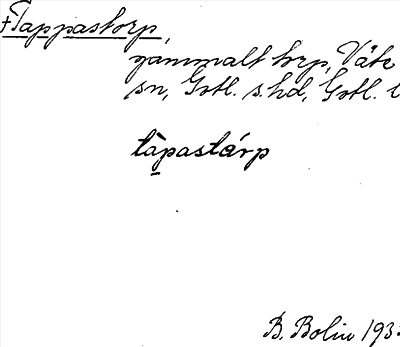 +Tappastorp,
gammalt torp, Väte
sn, Gotl. s. hd, Gotl. l
tàpastárp
B. Bolin 193